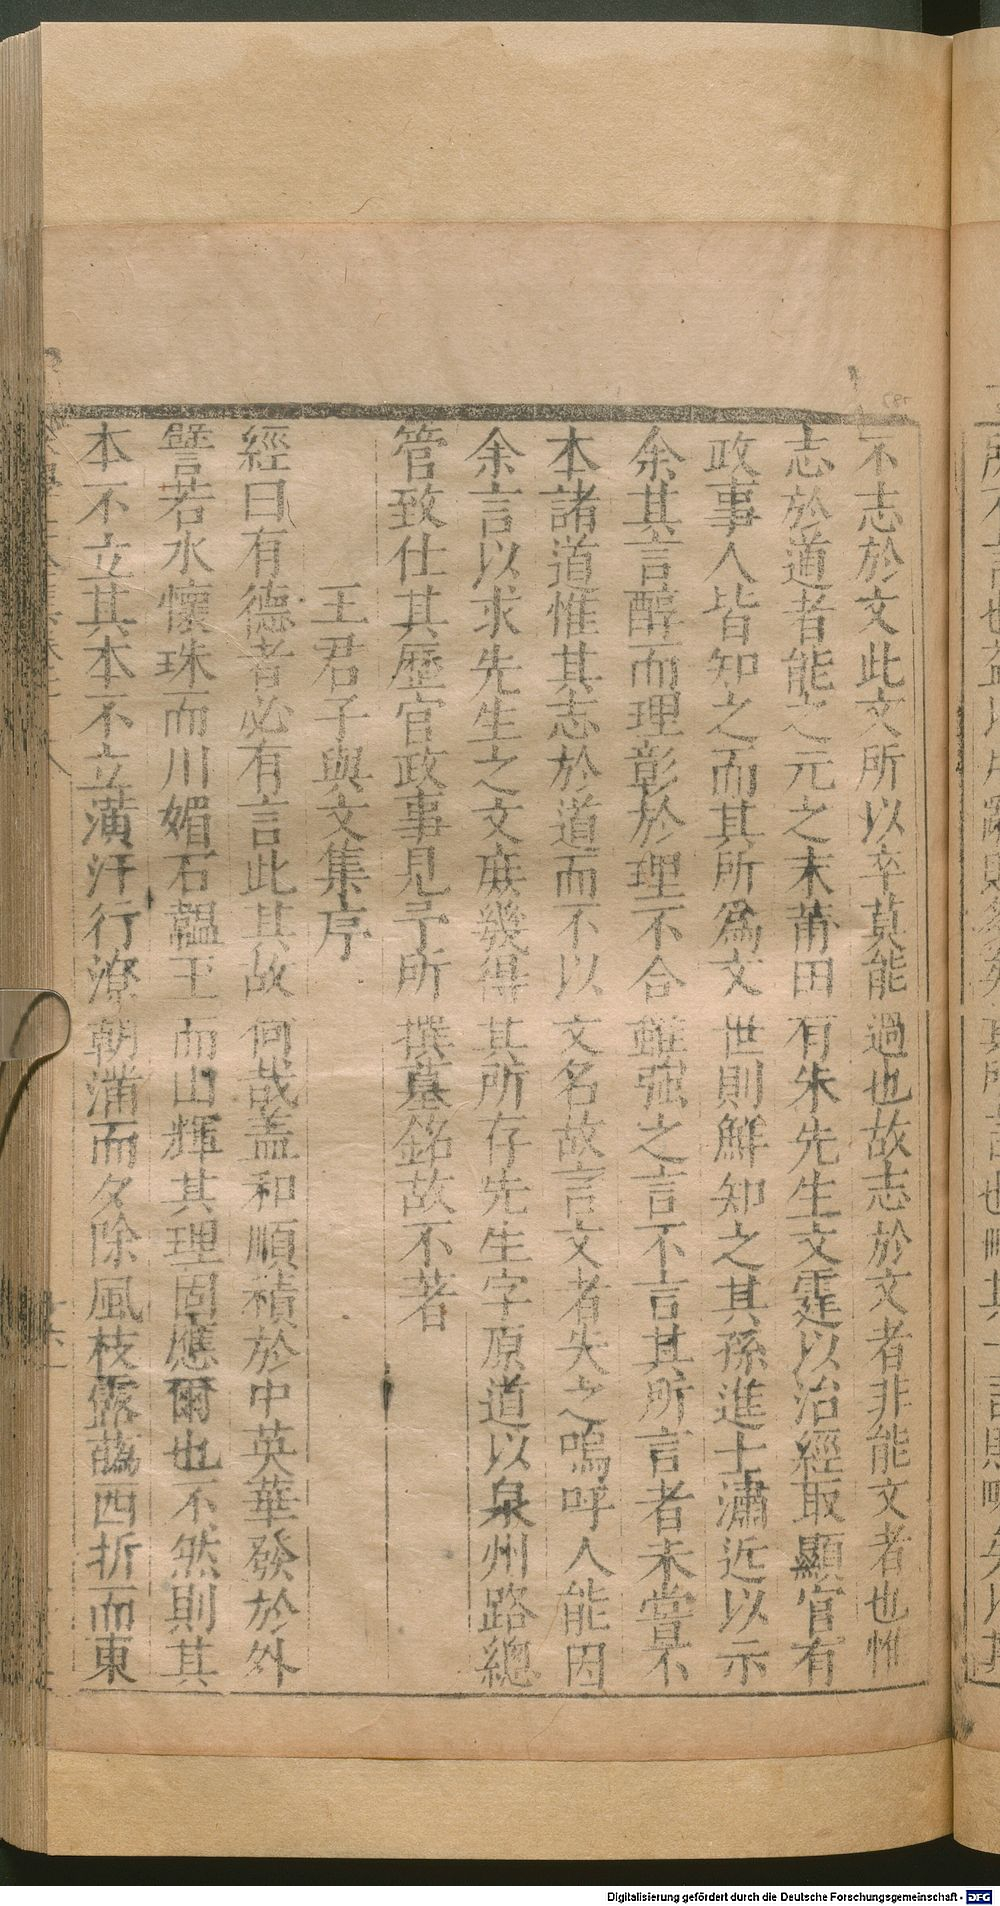 不志於文此文所以卒莫能過也故志於文者非能文者也惟
志於道者能之元之末莆田有朱先生文霆以治經取顯官有
政事人皆知之而其所為文世則鮮知之其孫進士潚近以示
余其言醇而理彰於理不合雖强之言不言其所言者未嘗不
本諸道惟其志於道而不以文名故言文者失之嗚呼人能因
余言以求先生之文庶幾得其所存先生字原道以泉州路總
管致仕其歷官政事見予所撰墓銘故不著
王君子與文集序
經曰有德者必有言此其故何哉盖和順積於中英華發於外
譬若水懷珠而川媚石韞玉而山輝其理固應爾也不然則其
本不立其本不立潢汙行潦朝滿而夕除風枝露蘤西折而東
Digitalisierung gefördert durch die Deutsche Forschungsgemeinschaft - DFG